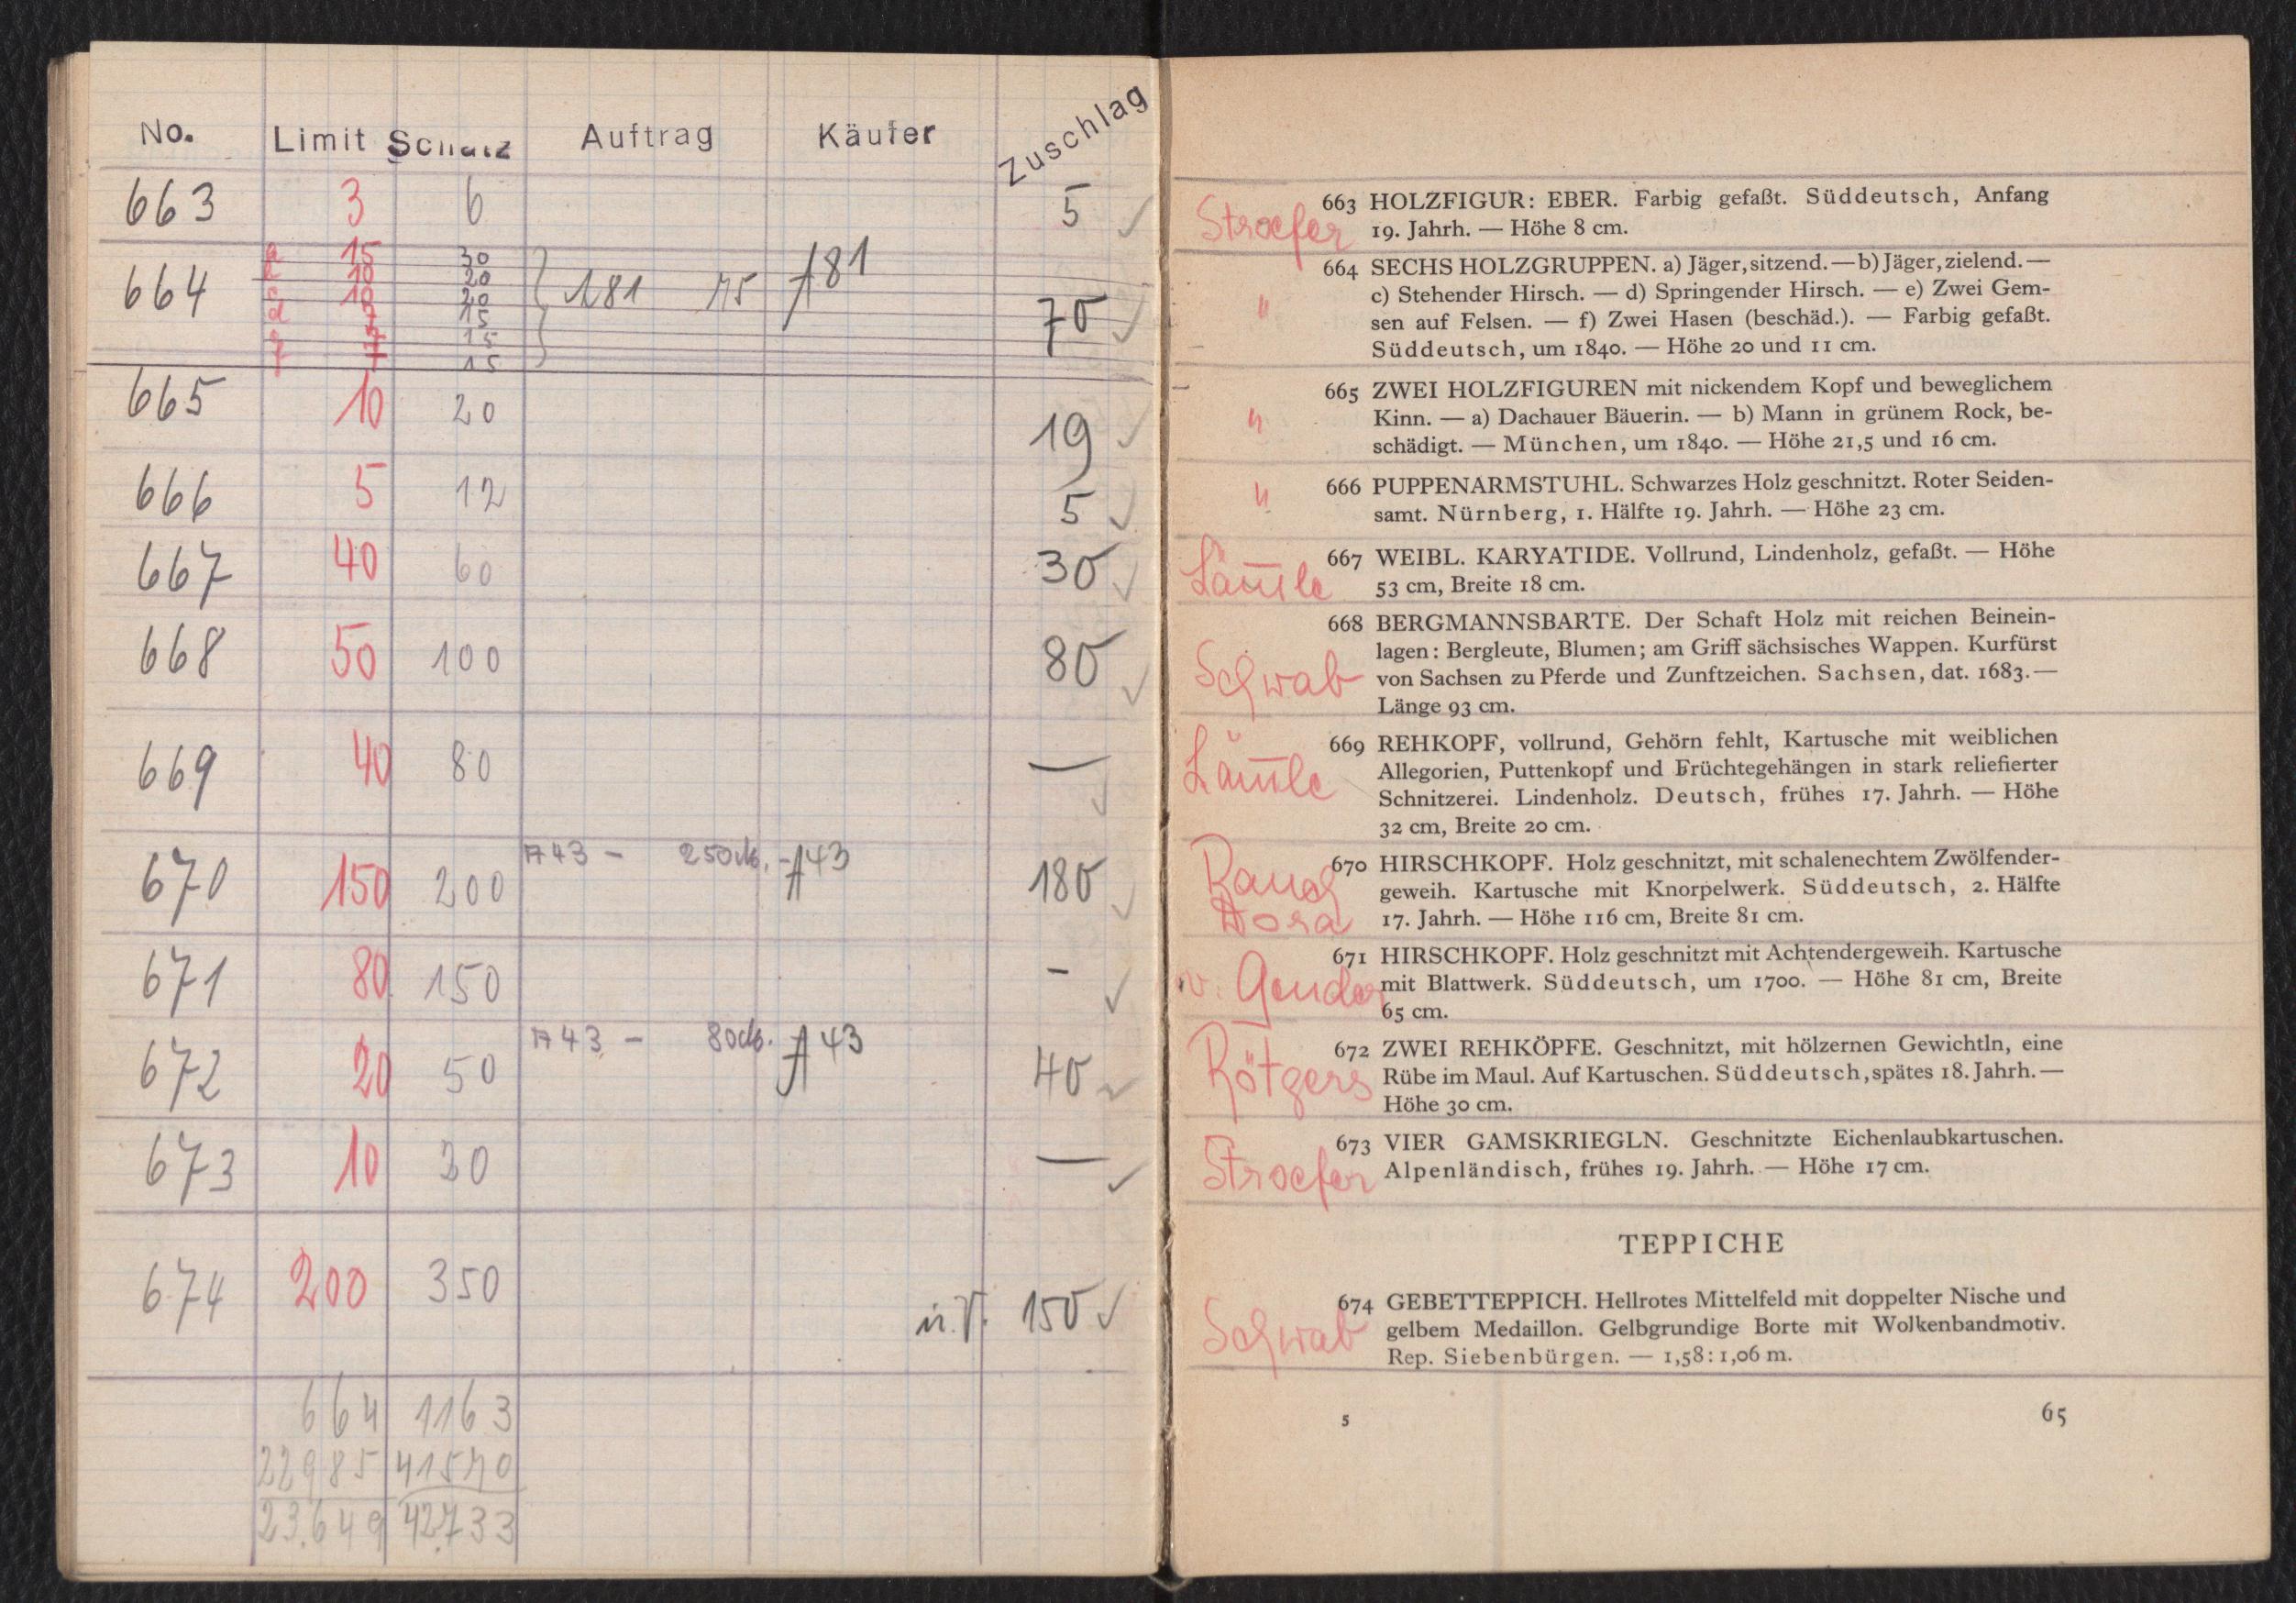 No. Limit Schatz Auftrag Käufer Zuschlag
663 3 6 5 ✓
664 181 75 A81 70 ✓
a 15 30
10 20
c 10 20
d 7 15
7 15
f 7 15
665 10 20 19 ✓
666 5 12 5 ✓
667 40 60 30 ✓
668 50 100 80 ✓
669 40 80 — ✓
670 150 200 A43 – 250 A43 180 ✓
671 80 150 - ✓
672 20 50 A43 – 80 A43 40 ✓
673 10 30 — ✓
674 200 350 ü.V. 150 ✓
664 1163
22985 41570
23.649 42733
Stroefer
663 HOLZFIGUR: EBER. Farbig gefaßt. Süddeutsch, Anfang
19. Jahrh. — Höhe 8 cm.
664 SECHS HOLZGRUPPEN. a) Jäger, sitzend. — b) Jäger, zielend. —
" c) Stehender Hirsch. — d) Springender Hirsch. — e) Zwei Gem-
sen auf Felsen. — f) Zwei Hasen (beschäd.). — Farbig gefaßt.
Süddeutsch, um 1840. — Höhe 20 und 11 cm.
665 ZWEI HOLZFIGUREN mit nickendem Kopf und beweglichem
" Kinn. — a) Dachauer Bäuerin. — b) Mann in grünem Rock, be-
schädigt. — München, um 1840. — Höhe 21,5 und 16 cm.
" 666 PUPPENARMSTUHL. Schwarzes Holz geschnitzt. Roter Seiden-
samt. Nürnberg, 1. Hälfte 19. Jahrh. — Höhe 23 cm.
667 WEIBL. KARYATIDE. Vollrund, Lindenholz, gefaßt. — Höhe
Lämle 53 cm, Breite 18 cm.
668 BERGMANNSBARTE. Der Schaft Holz mit reichen Beinein-
lagen: Bergleute, Blumen; am Griff sächsisches Wappen. Kurfürst
Schwab von Sachsen zu Pferde und Zunftzeichen. Sachsen, dat. 1683. —
Länge 93 cm.
669 REHKOPF, vollrund, Gehörn fehlt, Kartusche mit weiblichen
Lämle Allegorien, Puttenkopf und Früchtegehängen in stark reliefierter
Schnitzerei. Lindenholz. Deutsch, frühes 17. Jahrh. — Höhe
32 cm, Breite 20 cm.
670 HIRSCHKOPF. Holz geschnitzt, mit schalenechtem Zwölfender-
Rauch geweih. Kartusche mit Knorpelwerk. Süddeutsch, 2. Hälfte
Dora 17. Jahrh. — Höhe 116 cm, Breite 81 cm.
671 HIRSCHKOPF. Holz geschnitzt mit Achtendergeweih. Kartusche
v. mit Blattwerk. Süddeutsch, um 1700. — Höhe 81 cm, Breite
65 cm.
672 ZWEI REHKÖPFE. Geschnitzt, mit hölzernen Gewichtln, eine
Rötgers Rübe im Maul. Auf Kartuschen. Süddeutsch, spätes 18. Jahrh. —
Höhe 30 cm.
673 VIER GAMSKRIEGLN. Geschnitzte Eichenlaubkartuschen.
Stroefer Alpenländisch, frühes 19. Jahrh. — Höhe 17 cm.
TEPPICHE
674 GEBETTEPPICH. Hellrotes Mittelfeld mit doppelter Nische und
Schwab gelbem Medaillon. Gelbgrundige Borte mit Wolkenbandmotiv.
Rep. Siebenbürgen. — 1,58:1,06 m.
5 65